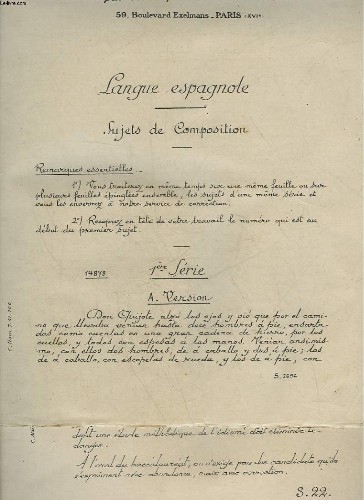 59, Boulevard Exelmans - PARIS (XVIe)
Langue espagnole
Sujets de Composition
Remarques essentielles
1º) Vous traiterez en même temps sur une même feuille ou sur
plusieurs feuilles épinglées ensemble, les sujets d'une même série et
vous les enverrez à notre service de correction.
2º) Rappelez en tête de votre travail le numéro qui est au
début du premier sujet.
14878 1ère Série
A. Version
Don Quijote alzó los ojos y vió que por el cami
no que llevaba venían hasta doce hombres à pie, ensarta-
dos como cuentas en una gran cadena de hierro, por los
cuellos, y todos con esposas á las manos. Venían ansimis-
mo, con ellos dos hombres, de á caballo y dos á pie; los
de á caballo, con escopetas de rueda, y los de á pie, con
S. 2252
étude méthodique de l'idiome doit éliminer ce
danger.
A l'oral du baccalauréat, on n'exige pas des candidats qu'ils
s'expriment avec abondance, mais avec correction.
S. 22.